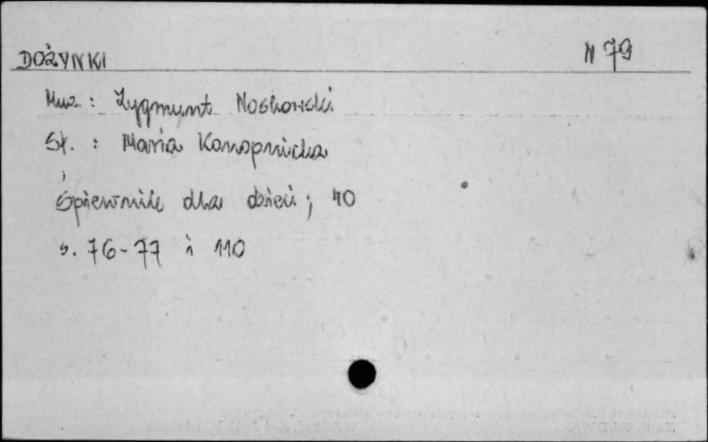 DOŻYNKI N 79
Muz. : Zygmunt Noskowski
Sł. : Maria Konopnicka
Śpiewnik dla dzieci ; 40
s. 76-77 i 110